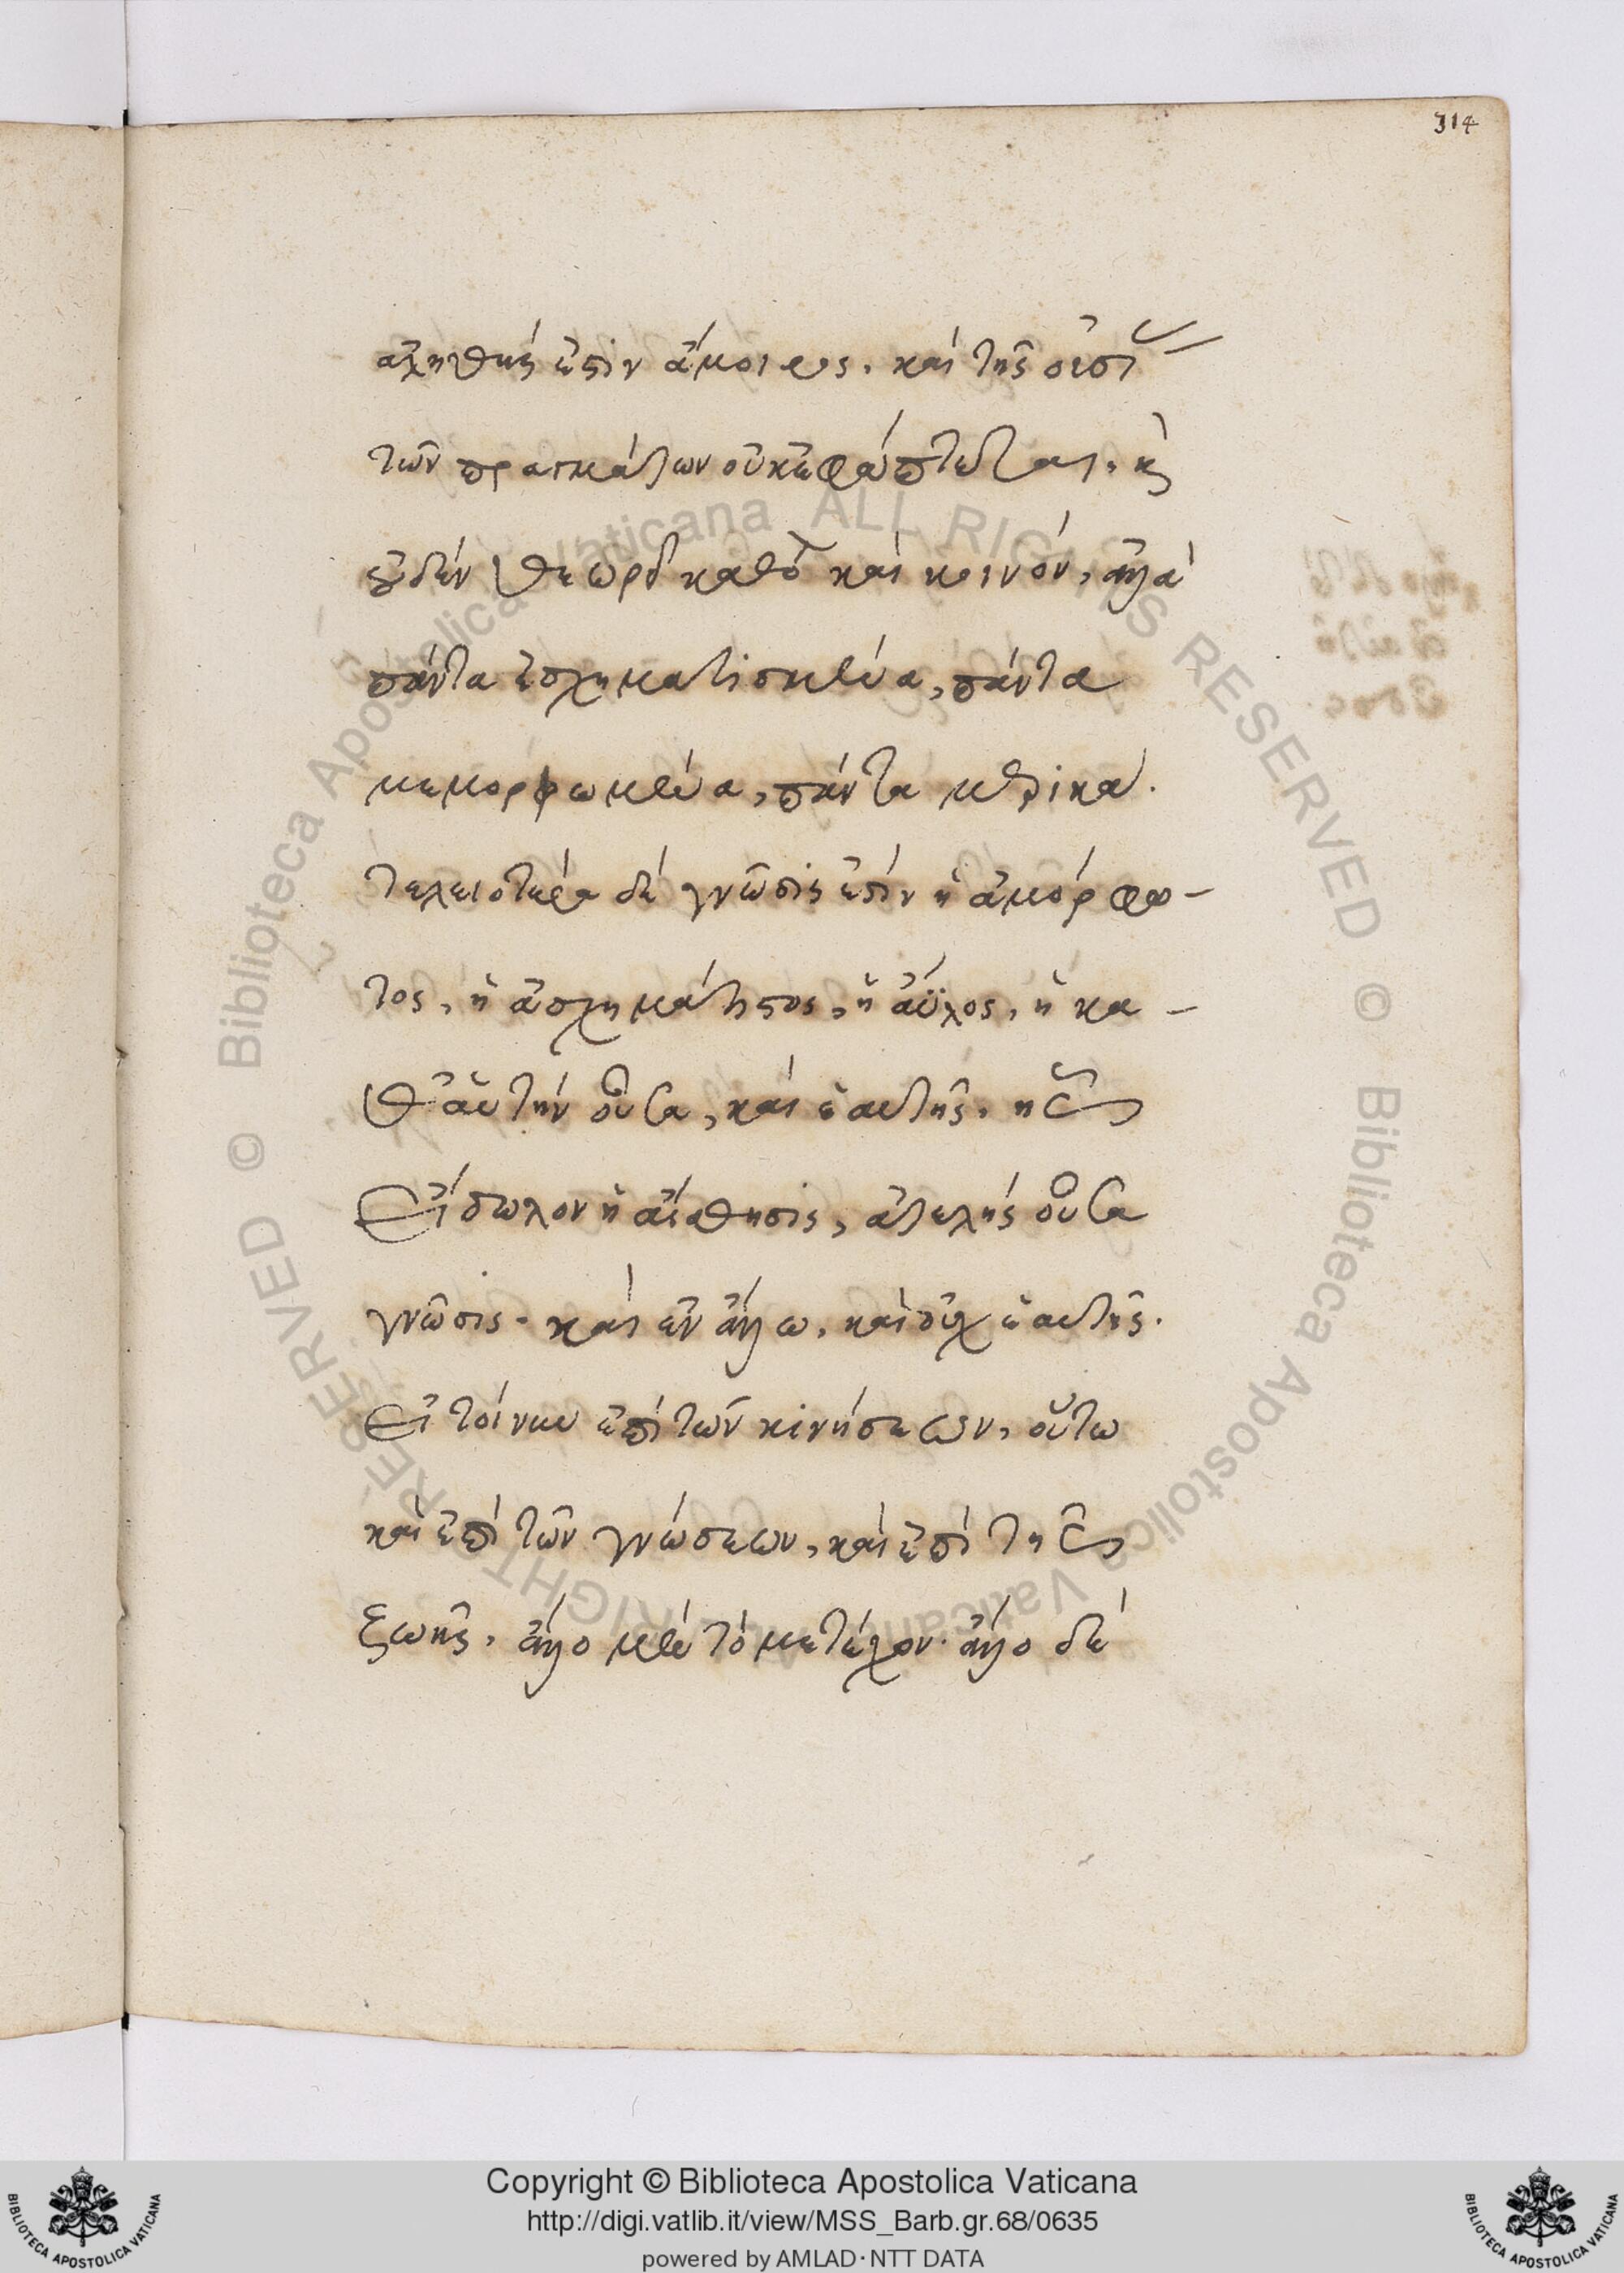 314
ἀληθής ἐστιν ἄμοιρος. καὶ τῆς οὐσίας
τῶν πραγμάτων οὐκ ἐφάπτεται. καὶ
οὐδὲν θεωρεῖ καθὸ καὶ κοινόν, ἀλλὰ
πάντα ἐσχηματισμένα, πάντα
μεμορφωμένα, πάντα μερικά.
τελειοτέρα δὲ γνῶσίς ἐστιν ἡ ἀμόρφω-
τος, ἡ ἀσχημάτιστος, ἡ ἄϋλος, ἡ κα-
θ' αὑτὴν οὖσα, καὶ ἑαυτῆς. ἧς
εἴδωλον ἡ αἴσθησις, ἀτελὴς οὖσα
γνῶσις. καὶ ἐν ἄλλῳ, καὶ οὐχ ἑαυτῆς.
εἰ τοίνυν ἐπὶ τῶν κινήσεων, οὕτω
καὶ ἐπὶ τῶν γνώσεων, καὶ ἐπὶ τῆς
ζωῆς. ἄλλο μὲν τὸ μετέχον. ἄλλο δὲ
Copyright © Biblioteca Apostolica Vaticana
http://digi.vatlib.it/view/MSS_Barb.gr.68/0635
powered by AMLAD·NTT DATA
BIBLIOTECA APOSTOLICA VATICANA
BIBLIOTECA APOSTOLICA VATICANA
© Biblioteca Apostolica Vaticana ALL RIGHTS RESERVED © Biblioteca Apostolica Vaticana ALL RIGHTS RESERVED